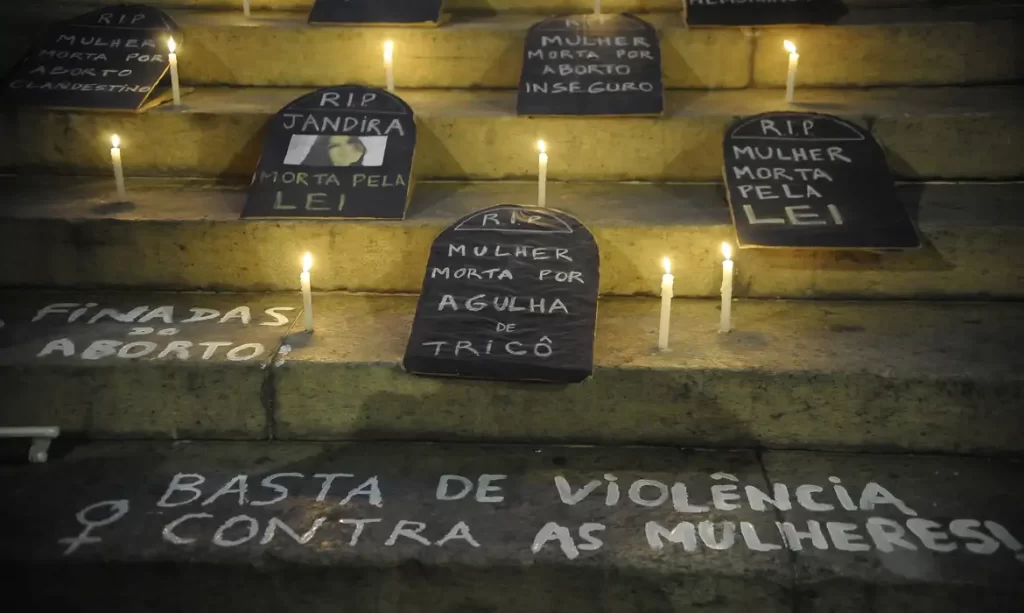 RIP
MULHER
MORTA POR
ABORTO
CLANDESTINO
RIP
MULHER
MORTA POR
ABORTO
INSEGURO
RIP
JANDIRA
MORTA PELA
LEI
R.I.P
MULHER
MORTA
PELA
LEI
R.I.P
MULHER
MORTA POR
AGULHA
DE
TRICÔ
FINADAS
DO
ABORTO!
BASTA DE VIOLÊNCIA
CONTRA AS MULHERES!